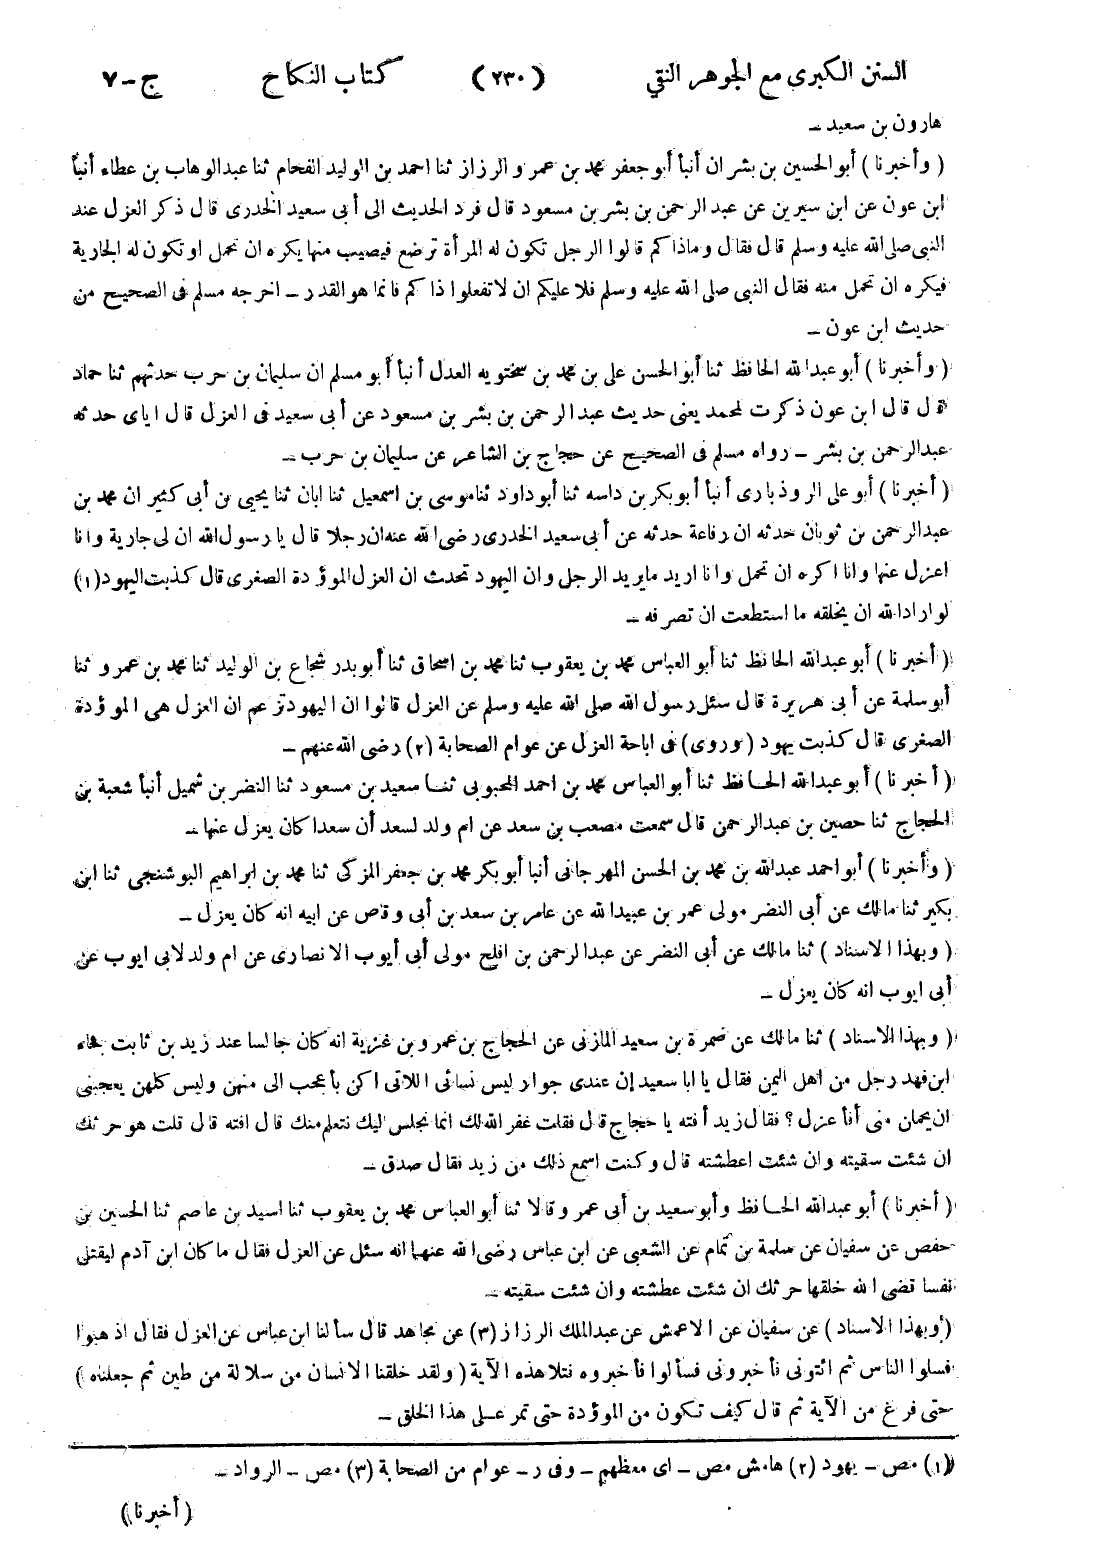 السنن الكبرى مع الجوهر النقي (٢٣٠) كتاب النكاح ج-٧
هارون بن سعيد -
(وأخبرنا) أبو الحسين بن بشران أنبأ أبو جعفر محمد بن عمرو الرزاز ثنا احمد بن الوليد الفحام ثنا عبدالوهاب بن عطاء أنبأ
ابن عون عن ابن سيرين عن عبد الرحمن بن بشر بن مسعود قال فرد الحديث الى أبى سعيد الخدرى قال ذكر العزل عند
النبى صلى الله عليه وسلم قال فقال وماذاكم قالوا الرجل تكون له المرأة ترضع فيصيب منها يكره ان تحمل او تكون له الجارية
فيكره ان تحمل منه فقال النبى صلى الله عليه وسلم فلا عليكم ان لا تفعلوا ذاكم فانما هو القدر - اخرجه مسلم فى الصحيح من
حديث ابن عون -
(وأخبرنا) أبو عبدالله الحافظ ثنا أبو الحسن على بن محمد بن سختويه العدل أنبأ أبو مسلم ان سليمان بن حرب حدثهم ثنا حماد
قال قال ابن عون ذكرت لمحمد يعنى حديث عبد الرحمن بن بشر بن مسعود عن أبى سعيد فى العزل قال اياى حدثه
عبدالرحمن بن بشر - رواه مسلم فى الصحيح عن حجاج بن الشاعر عن سليمان بن حرب -
(أخبرنا) أبو على الروذبارى أنبأ أبو بكر بن داسه ثنا أبو داود ثنا موسى بن اسمعيل ثنا ابان ثنا يحيى بن أبى كثير ان محمد بن
عبدالرحمن بن ثوبان حدثه ان رفاعة حدثه عن أبى سعيد الخدرى رضى الله عنه ان رجلا قال يا رسول الله ان لى جارية وانا
اعزل عنها وانا اكره ان تحمل وانا اريد ما يريد الرجل وان اليهود تحدث ان العزل الموؤدة الصغرى قال كذبت اليهود (١)
لو اراد الله ان يخلقه ما استطعت ان تصرفه -
(أخبرنا) أبو عبدالله الحافظ ثنا أبو العباس محمد بن يعقوب ثنا محمد بن اسحاق ثنا أبو بدر شجاع بن الوليد ثنا محمد بن عمرو ثنا
أبو سلمة عن أبى هريرة قال سئل رسول الله صلى الله عليه وسلم عن العزل قالوا ان اليهود تزعم ان العزل هى الموؤدة
الصغرى قال كذبت يهود (وروى) فى اباحة العزل عن عوام الصحابة (٢) رضى الله عنهم -
(أخبرنا) أبو عبدالله الحافظ ثنا أبو العباس محمد بن احمد المحبوبى ثنا سعيد بن مسعود ثنا النضر بن شميل أنبأ شعبة بن
الحجاج ثنا حصين بن عبدالرحمن قال سمعت مصعب بن سعد عن ام ولد لسعد أن سعدا كان يعزل عنها -
(وأخبرنا) أبو احمد عبدالله بن محمد بن الحسن المهرجانى أنبأ أبو بكر محمد بن جعفر المزكى ثنا محمد بن ابراهيم البوشنجى ثنا ابن
بكير ثنا مالك عن أبى النضر مولى عمر بن عبيدالله عن عامر بن سعد بن أبى وقاص عن ابيه انه كان يعزل -
(وبهذا الاسناد) ثنا مالك عن أبى النضر عن عبدالرحمن بن افلح مولى أبى أيوب الانصارى عن ام ولد لابى ايوب عن
أبى ايوب انه كان يعزل -
(وبهذا الاسناد) ثنا مالك عن ضمرة بن سعيد المازنى عن الحجاج بن عمرو بن غزية انه كان جالسا عند زيد بن ثابت فجاء
ابن فهد رجل من اهل اليمن فقال يا ابا سعيد إن عندى جوار ليس نسائى اللاتى اكن بأعجب الى منهن وليس كلهن يعجبنى
ان يحملن منى أفأ عزل؟ فقال زيد أفته يا حجاج قال فقلت غفر الله لك انما نجلس اليك نتعلم منك قال افته قال قلت هو حرثك
ان شئت سقيته وان شئت اعطشته قال وكنت اسمع ذلك من زيد فقال صدق -
(أخبرنا) أبو عبدالله الحافظ وأبو سعيد بن أبى عمرو قالا ثنا أبو العباس محمد بن يعقوب ثنا اسيد بن عاصم ثنا الحسين بن
حفص عن سفيان عن سلمة بن تمام عن الشعبى عن ابن عباس رضى الله عنهما انه سئل عن العزل فقال ما كان ابن آدم ليقتل
نفسا قضى الله خلقها حرثك ان شئت عطشته وان شئت سقيته -
(وبهذا الاسناد) عن سفيان عن الاعمش عن عبدالملك الرزاز (٣) عن مجاهد قال سألنا ابن عباس عن العزل فقال اذهبوا
فسلوا الناس ثم ائتونى فأخبرونى فسألوا فأخبروه فتلا هذه الآية (ولقد خلقنا الانسان من سلالة من طين ثم جعلناه)
حتى فرغ من الآية ثم قال كيف تكون من الموؤدة حتى تمر على هذا الخلق -
(١) مص - يهود (٢) هامش مص - اى معظهم - وفى ر - عوام من الصحابة (٣) مص - الرواد -
(أخبرنا)